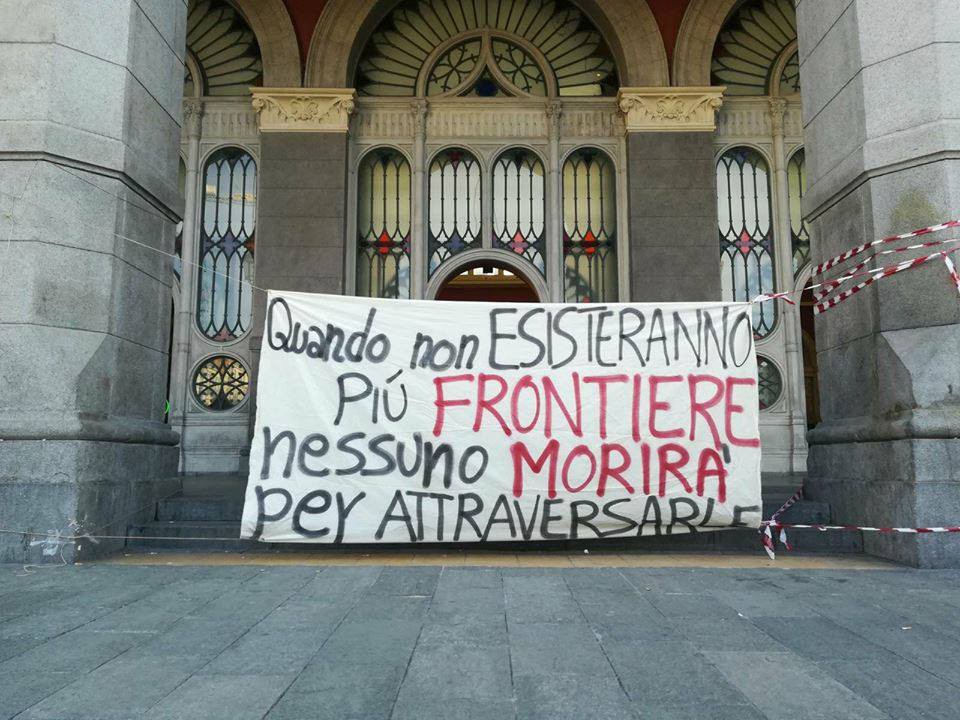 Quando non ESISTERANNO
PIÚ FRONTIERE
nessuno MORIRA'
per ATTRAVERSARLE